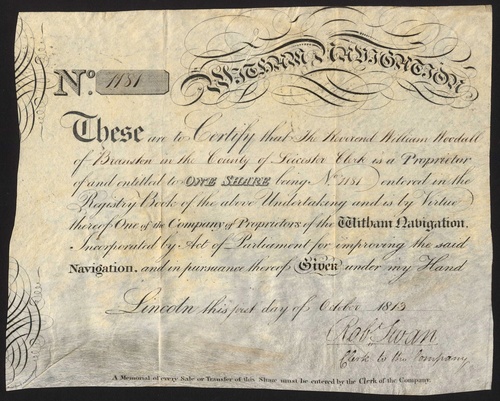 WITHAM NAVIGATION
No. 1181
These are to Certify that The Reverend William Woodall
of Branston in the County of Leicester Clerk is a Proprietor
of and entitled to ONE SHARE being No. 1181 entered in the
Registry Book of the above Undertaking and is by Virtue
thereof One of the Company of Proprietors of the Witham Navigation,
Incorporated by Act of Parliament for improving the said
Navigation, and in pursuance thereof Given under my Hand
Lincoln this first day of October 1813
Rob. Swan
Clerk to the Company
A Memorial of every Sale or Transfer of this Share must be entered by the Clerk of the Company.